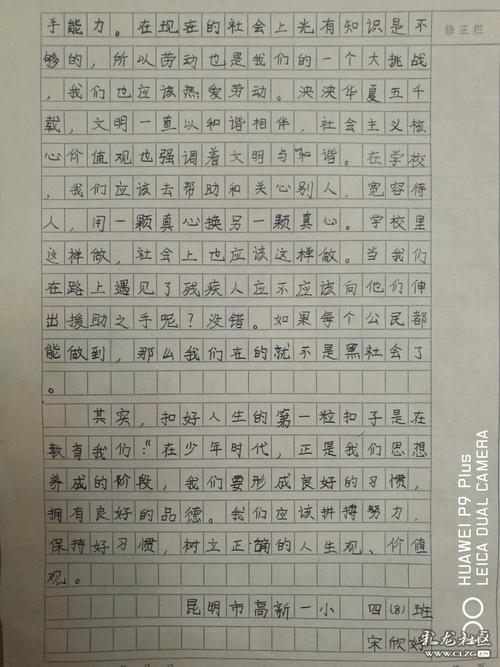 修正栏
手能力。在现在的社会上光有知识是不
够的，所以劳动也是我们的一个大挑战
，我们也应该热爱劳动。泱泱华夏五千
载，文明一直以和谐相伴，社会主义核
心价值观也强调着文明与"和谐。在学校
，我们应该去帮助和关心别人，宽容待
人，用一颗真心换另一颗真心。学校里
这样做，社会上也应该这样做。当我们
在路上遇见了残疾人应不应该向他们伸
出援助之手呢？没错。如果每个公民都
能做到，那么我们在的就不是黑社会了
。
其实，扣好人生的第一粒扣子是在
教育我们："在少年时代，正是我们思想
养成的阶段，我们要形成良好的习惯，
拥有良好的品德。我们应该拼搏努力，
保持好习惯，树立正确的人生观、价值
观。
昆明市高新一小 四(8)班
宋欣妤
HUAWEI P9 Plus
LEICA DUAL CAMERA
彩龙社区
WWW.CLZG.CN